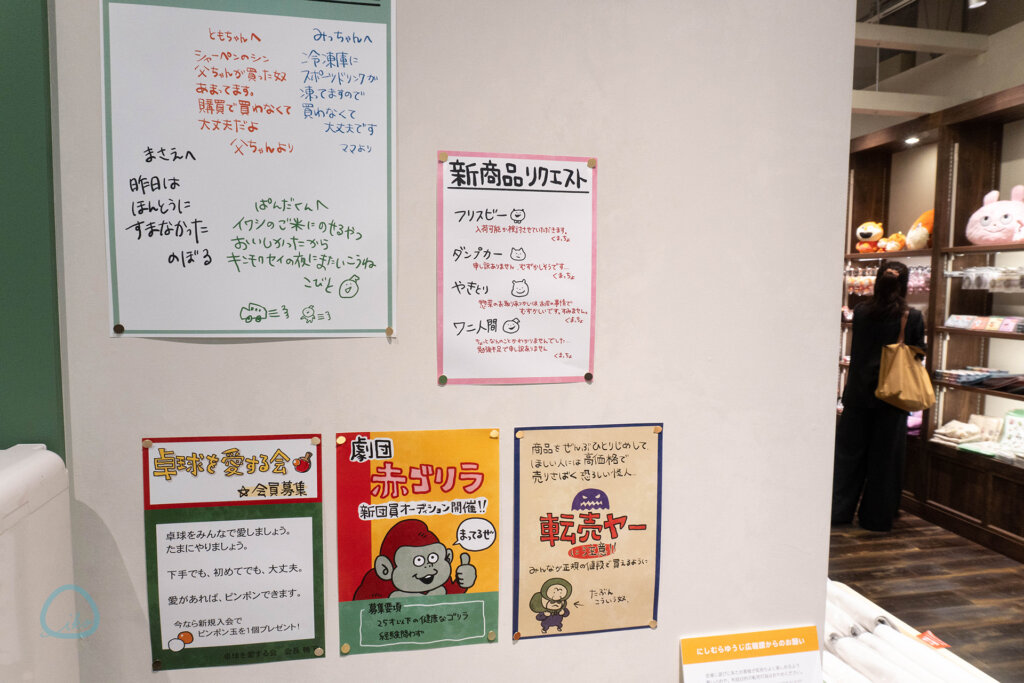 ともちゃんへ
シャーペンのシン
父ちゃんが買った奴
あまってます。
購買で買わなくて
大丈夫だよ
父ちゃんより
みっちゃんへ
冷凍庫に
スポーツドリンクが
凍ってますので
買わなくて
大丈夫です
ママより
まさえへ
昨日は
ほんとうに
すまなかった
のぼる
ぱんだくんへ
イワシのご米にのせるやつ
おいしかったから
キンモクセイの夜にまたいこうね
こびと
新商品リクエスト
フリスビー
入荷可能か検討させていただきます。
くまっちょ
ダンプカー
申し訳ありません。むずかしそうです…
くまっちょ
やきとり
惣菜のお取りあつかいはお店の事情で
むずかしいです。すみません。
くまっちょ
ワニ人間
ちょっとなんのことかわかりませんでした…
勉強不足で申し訳ありません
くまっちょ
卓球を愛する会
☆会員募集
卓球をみんなで愛しましょう。
たまにやりましょう。
下手でも、初めてでも、大丈夫。
愛があれば、ピンポンできます。
今なら新規入会で
ピンポン玉を1個プレゼント!
卓球を愛する会 会長
劇団
赤ゴリラ
新団員オーディション開催!!
まってるぜ
募集要項
25才以下の健康なゴリラ
経験問わず
商品をぜんぶひとりじめして
ほしい人には高価格で
売りさばく恐ろしい怪人…
転売ヤー
に注意!!
みんなが正規の値段で買えるように
たぶん
こういう奴。
にしむらゆうじ広報課からのお願い